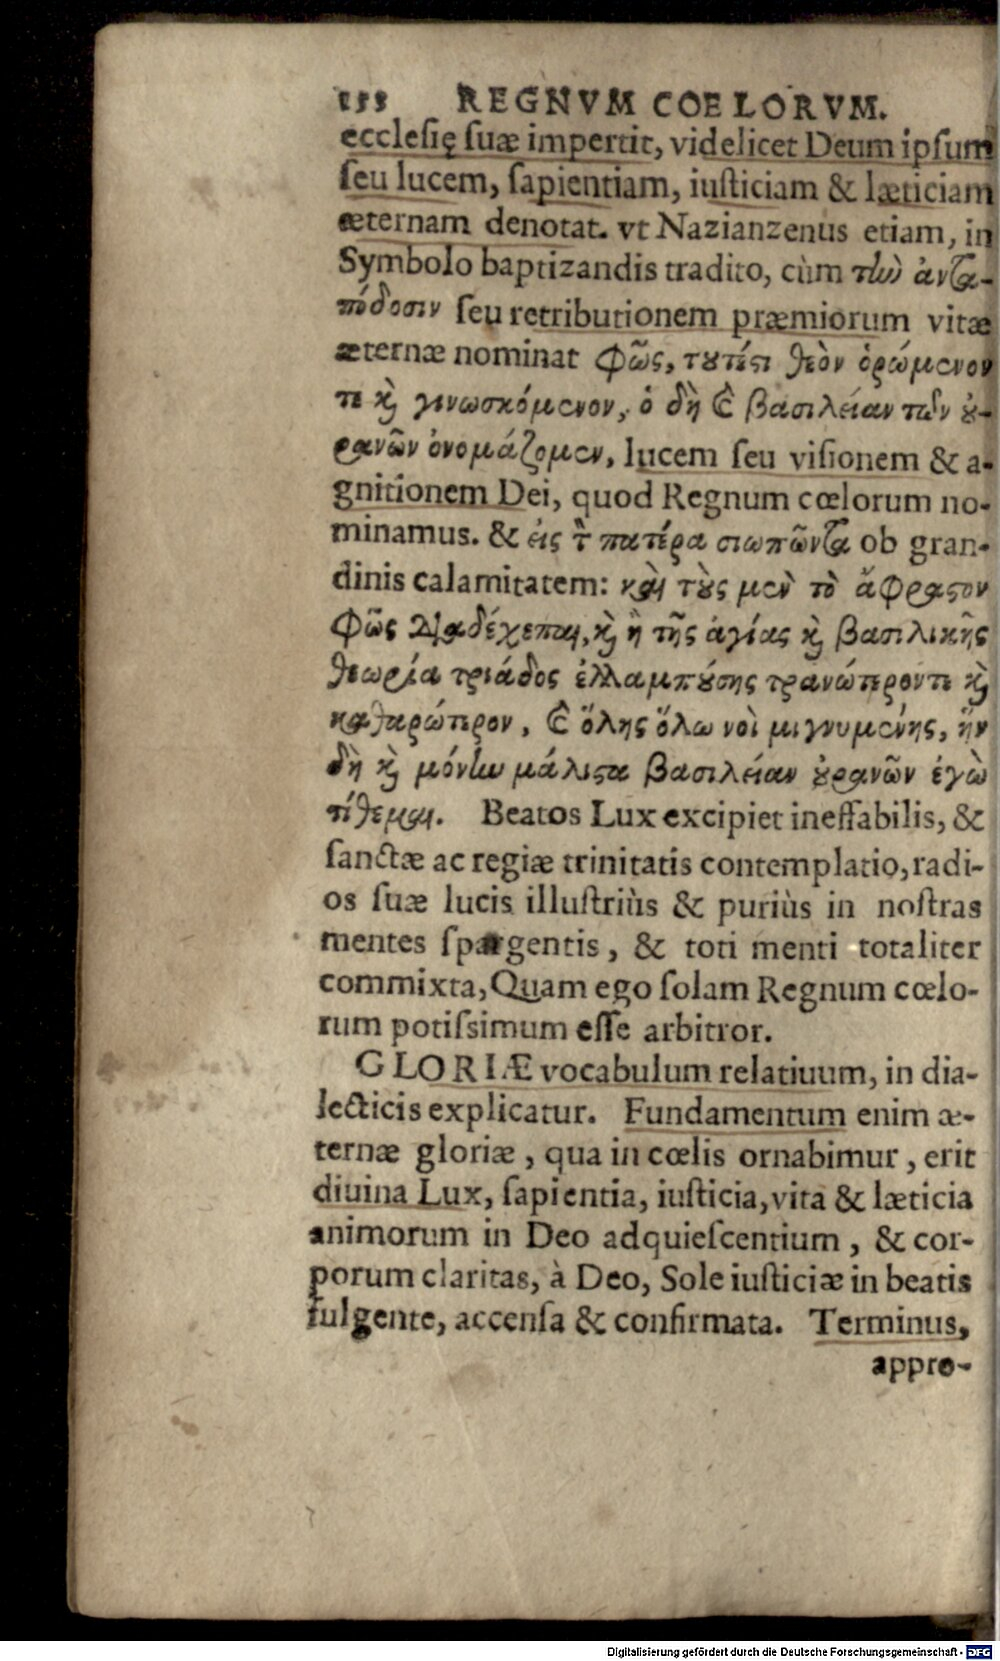 155 REGNVM COELORVM.
ecclesię suæ impertit, videlicet Deum ipsum
seu lucem, sapientiam, iusticiam & læticiam
æternam denotat. vt Nazianzenus etiam, in
Symbolo baptizandis tradito, cùm τὴν ἀντα-
πόδοσιν seu retributionem præmiorum vitæ
æternæ nominat φῶς, τουτέστι θεὸν ὁρώμενον
τε καὶ γινωσκόμενον, ὁ δὴ καὶ βασιλείαν τῶν οὐ-
ρανῶν ὀνομάζομεν, lucem seu visionem & a-
gnitionem Dei, quod Regnum cœlorum no-
minamus. & εἰς τὸν πατέρα σιωπῶντα ob gran-
dinis calamitatem: καὶ τοὺς μὲν τὸ ἄφραστον
φῶς διαδέχεται, καὶ ἡ τῆς ἁγίας καὶ βασιλικῆς
θεωρία τριάδος ἐλλαμπούσης τρανώτερόντε καὶ
καθαρώτερον, καὶ ὅλης ὅλω νοὶ μιγνυμένης, ἥν
δὴ καὶ μόνην μάλιστα βασιλείαν οὐρανῶν ἐγὼ
τίθεμαι. Beatos Lux excipiet ineffabilis, &
sanctæ ac regiæ trinitatis contemplatio, radi-
os suæ lucis illustriùs & puriùs in nostras
mentes spargentis, & toti menti totaliter
commixta, Quam ego solam Regnum cœlo-
rum potissimum esse arbitror.
GLORIÆ vocabulum relatiuum, in dia-
lecticis explicatur. Fundamentum enim æ-
ternæ gloriæ, qua in cœlis ornabimur, erit
diuina Lux, sapientia, iusticia, vita & læticia
animorum in Deo adquiescentium, & cor-
porum claritas, à Deo, Sole iusticiæ in beatis
fulgente, accensa & confirmata. Terminus,
appro-
Digitalisierung gefördert durch die Deutsche Forschungsgemeinschaft - DFG